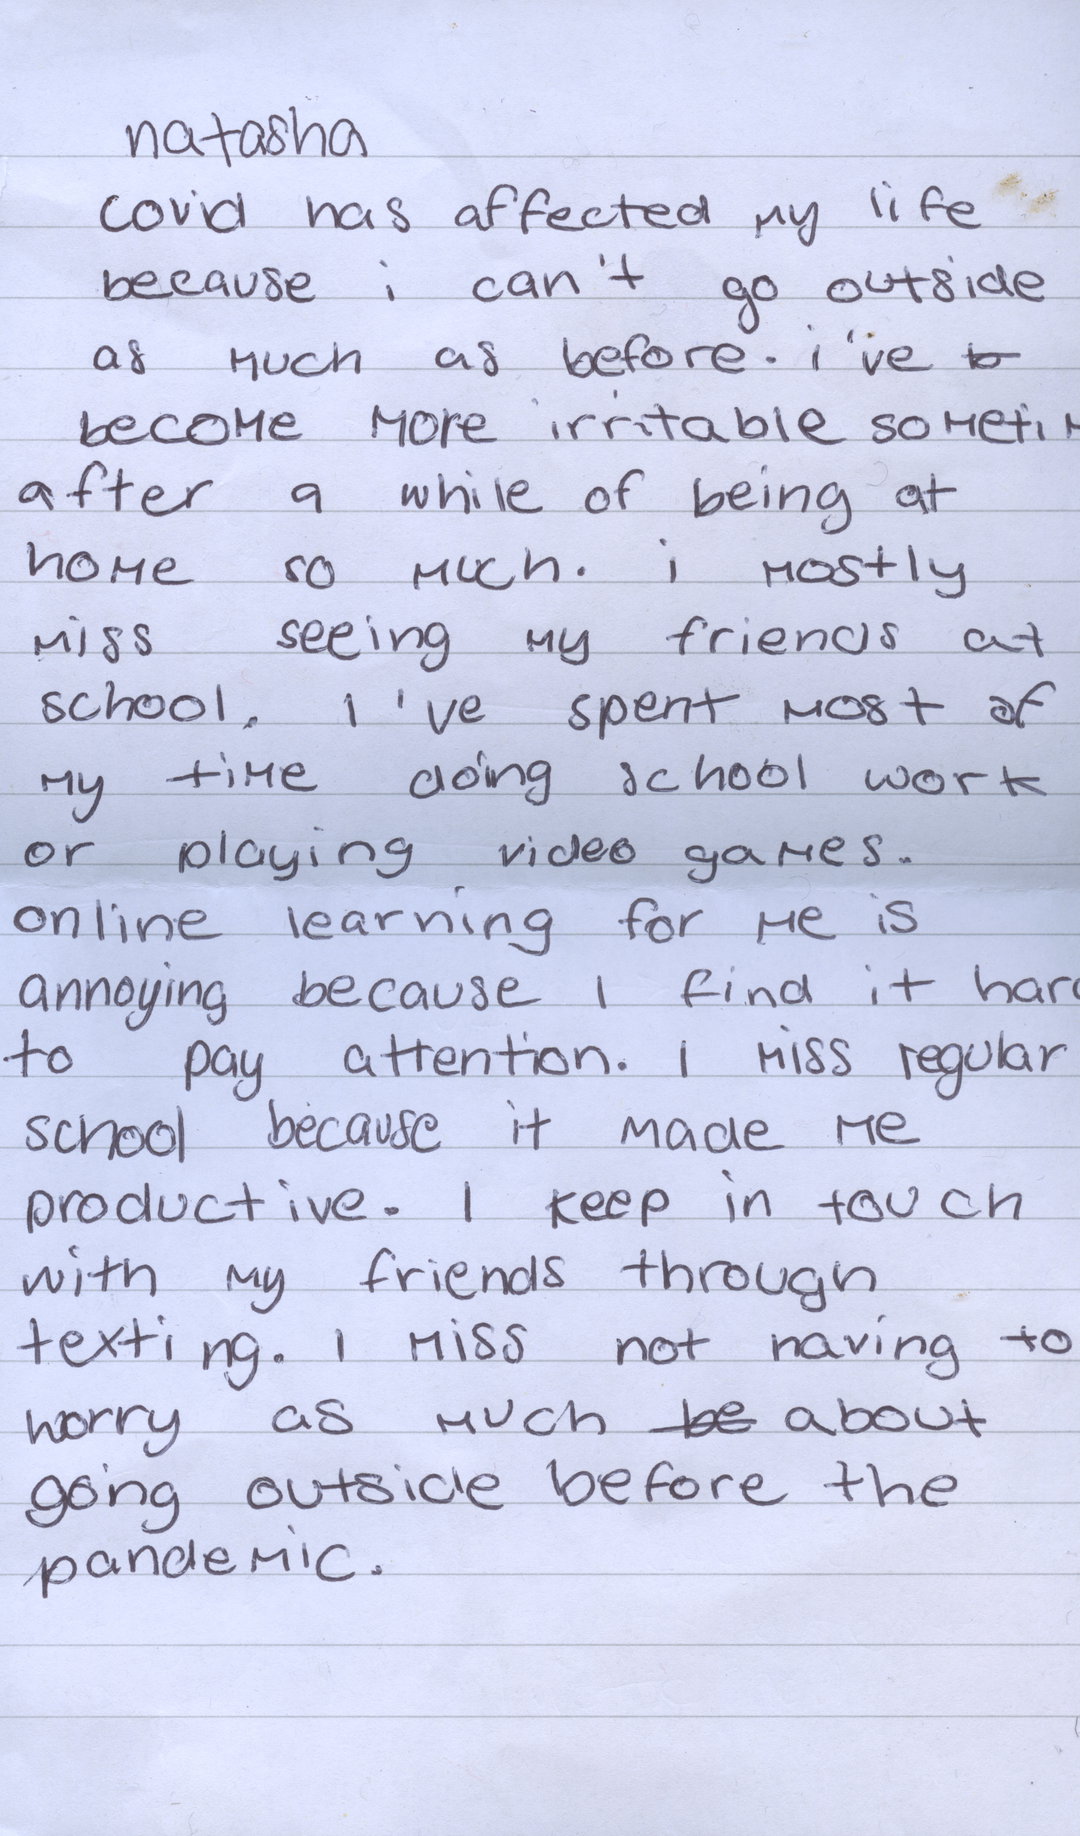 natasha
covid has affected my life
because i can't go outside
as much as before. i've b
become more irritable sometim
after a while of being at
home so much. i mostly
miss seeing my friends at
school. I've spent most of
my time doing school work
or playing video games.
online learning for me is
annoying because I find it hard
to pay attention. I miss regular
school because it made me
productive. I keep in touch
with my friends through
texting. I miss not having to
worry as much be about
going outside before the
pandemic.